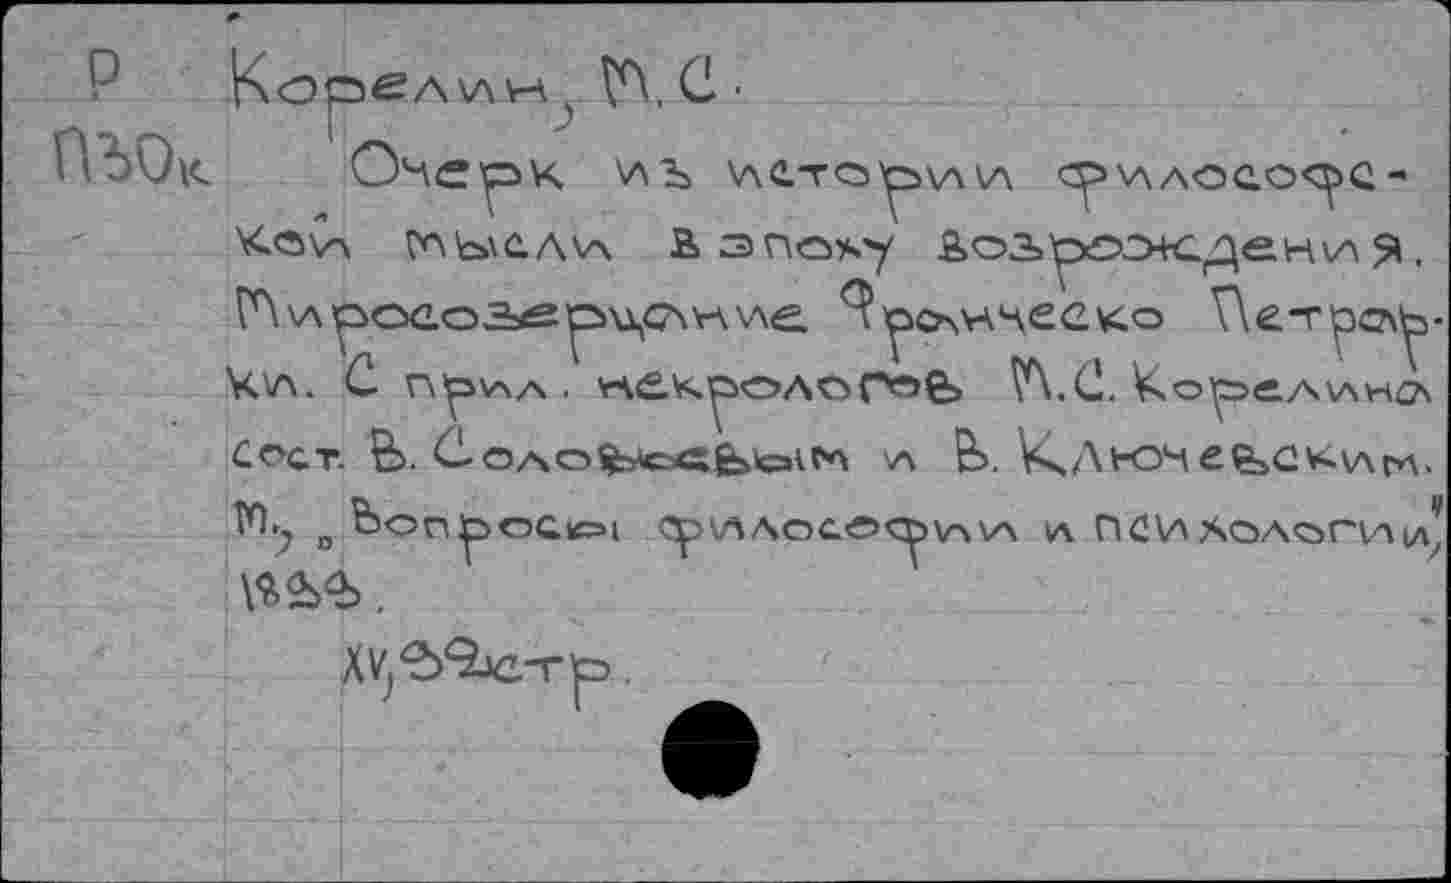 Р Корелин, М. С.
П30к Очерк из истории философс-
кой мысли в эпоху возрождения.
Миросозерцание Франческо Петрар-
ки. С прил. некрологов М.С. Корелина
сост. В. Соловьевым и В. Ключевским.
М., „Вопросы философии и психологии",
XV, стр.